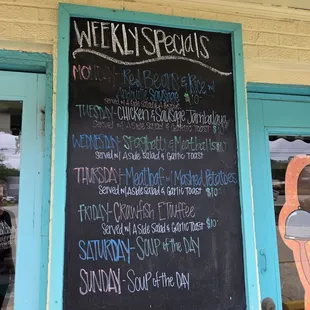 WEEKLY SPecials
MONDAY- Red Beans & Rice w/
Andouille Sausage $10
Served w/ A side Salad & Garlic Toast
TUESDAY- Chicken & Sausage Jambalaya
Served w/ A side Salad & Garlic Toast $10
WEDNESDAY- Spaghetti & Meatballs $10
Served w/ A side Salad & Garlic Toast
THURSDAY- Meatloaf w/ Mashed Potatoes
Served w/ A side Salad & Garlic Toast $10
FRIDAY- Crawfish ETouffee
Served w/ A side Salad & Garlic Toast $10
SATURDAY- SOUP OF THE DAY
SUNDAY- SOUP OF THE DAY